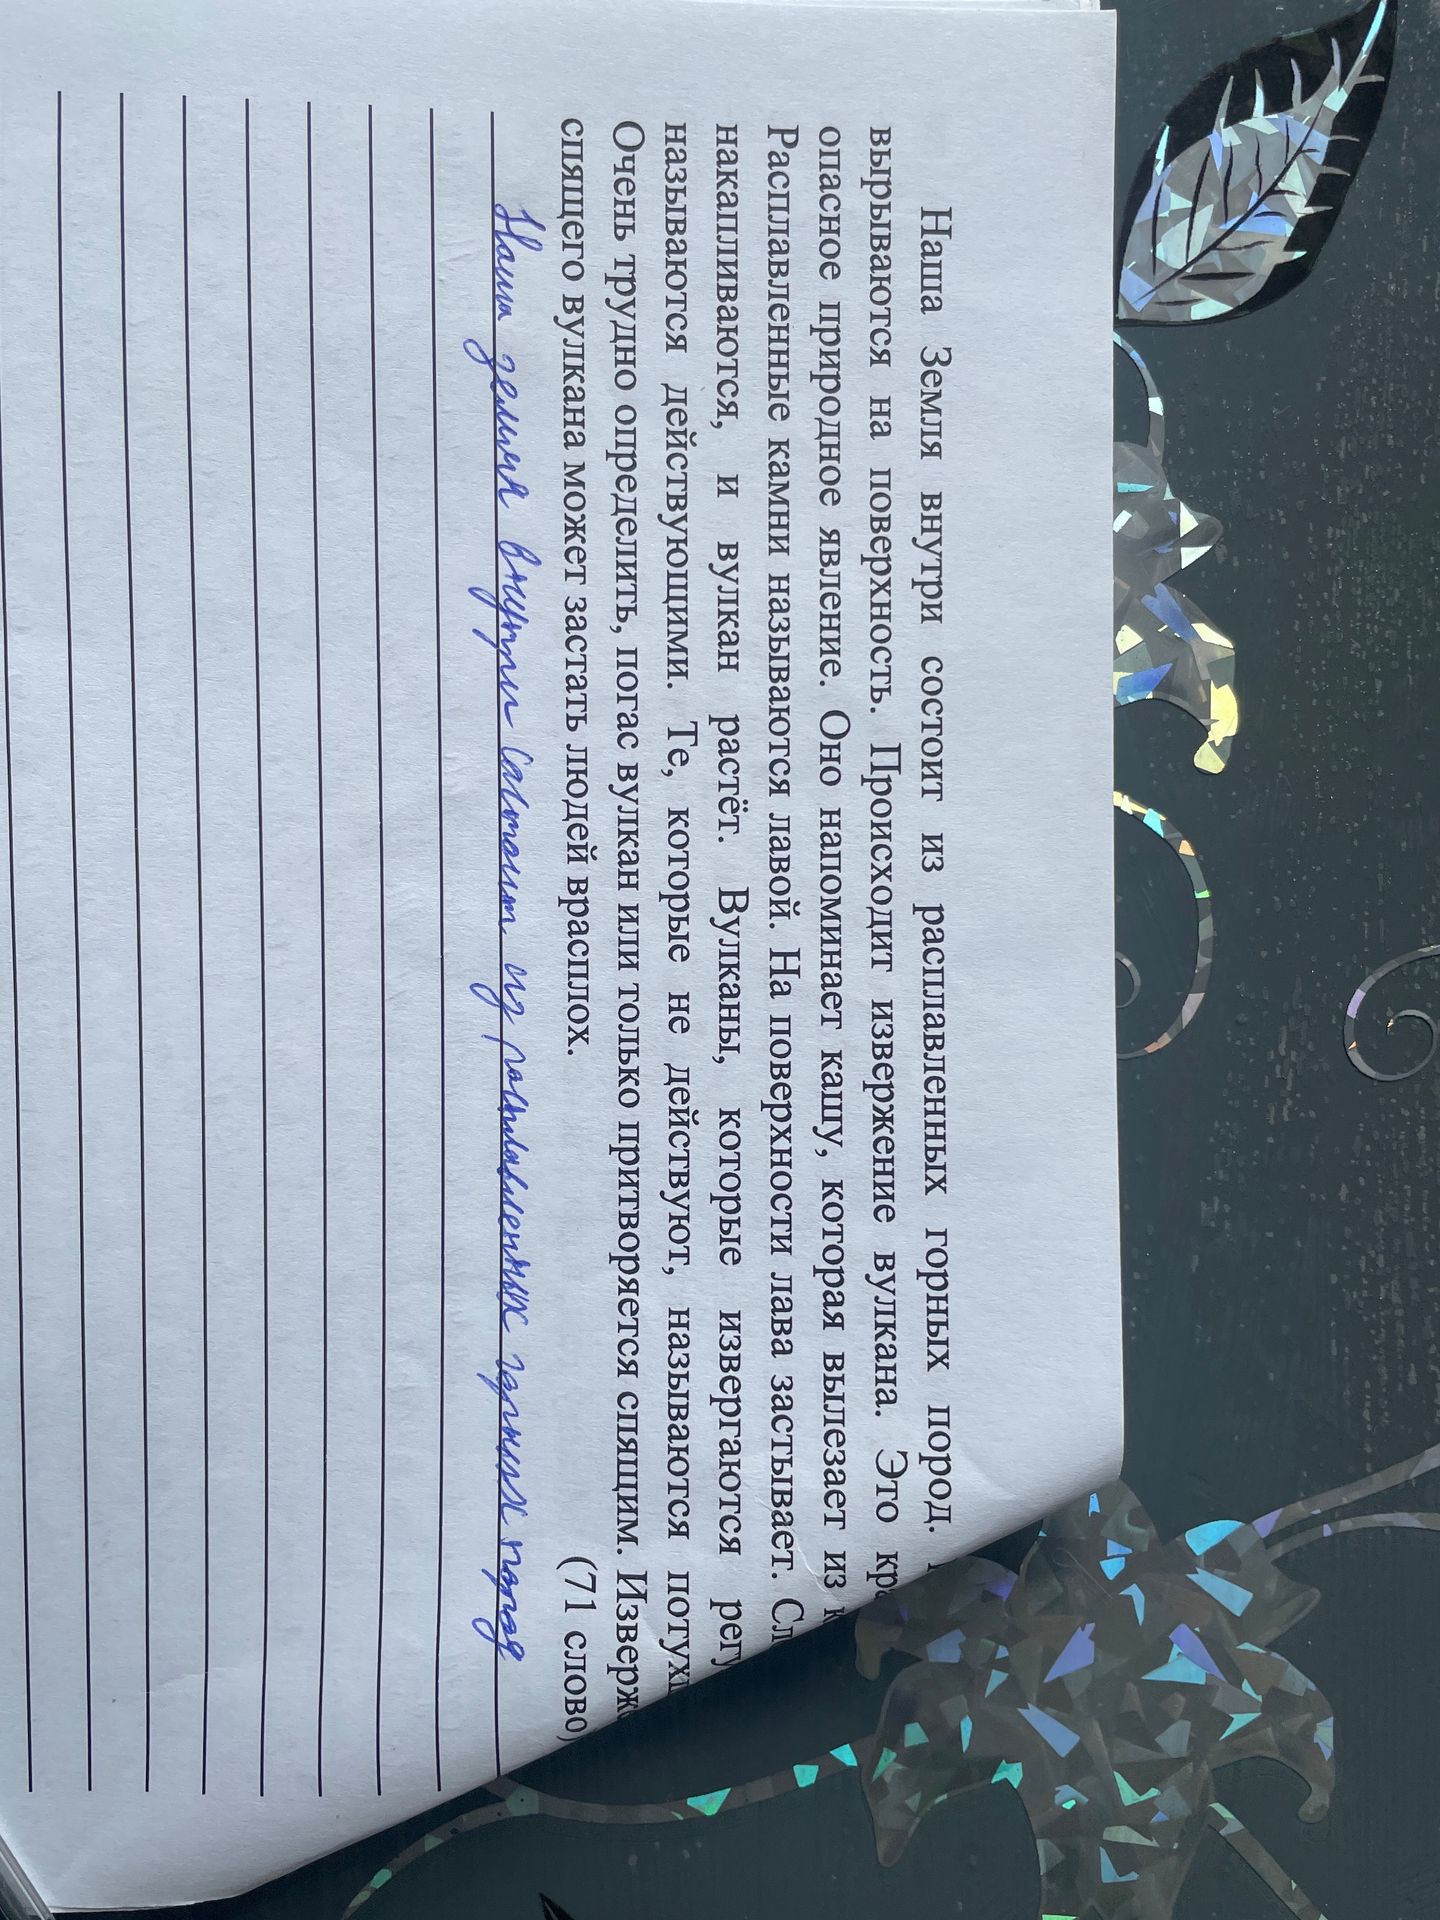 Наша Земля внутри состоит из расплавленных горных пород.
вырываются на поверхность. Происходит извержение вулкана. Это
опасное природное явление. Оно напоминает кашу, которая вылезает из
Расплавленные камни называются лавой. На поверхности лава застывает.
накапливаются, и вулкан растёт. Вулканы, которые извергаются
называются действующими. Те, которые не действуют, называются
Очень трудно определить, погас вулкан или только притворяется спящим.
спящего вулкана может застать людей врасплох.
(71 слово)
Наша земля внутри састоит из расплавленных горных пород